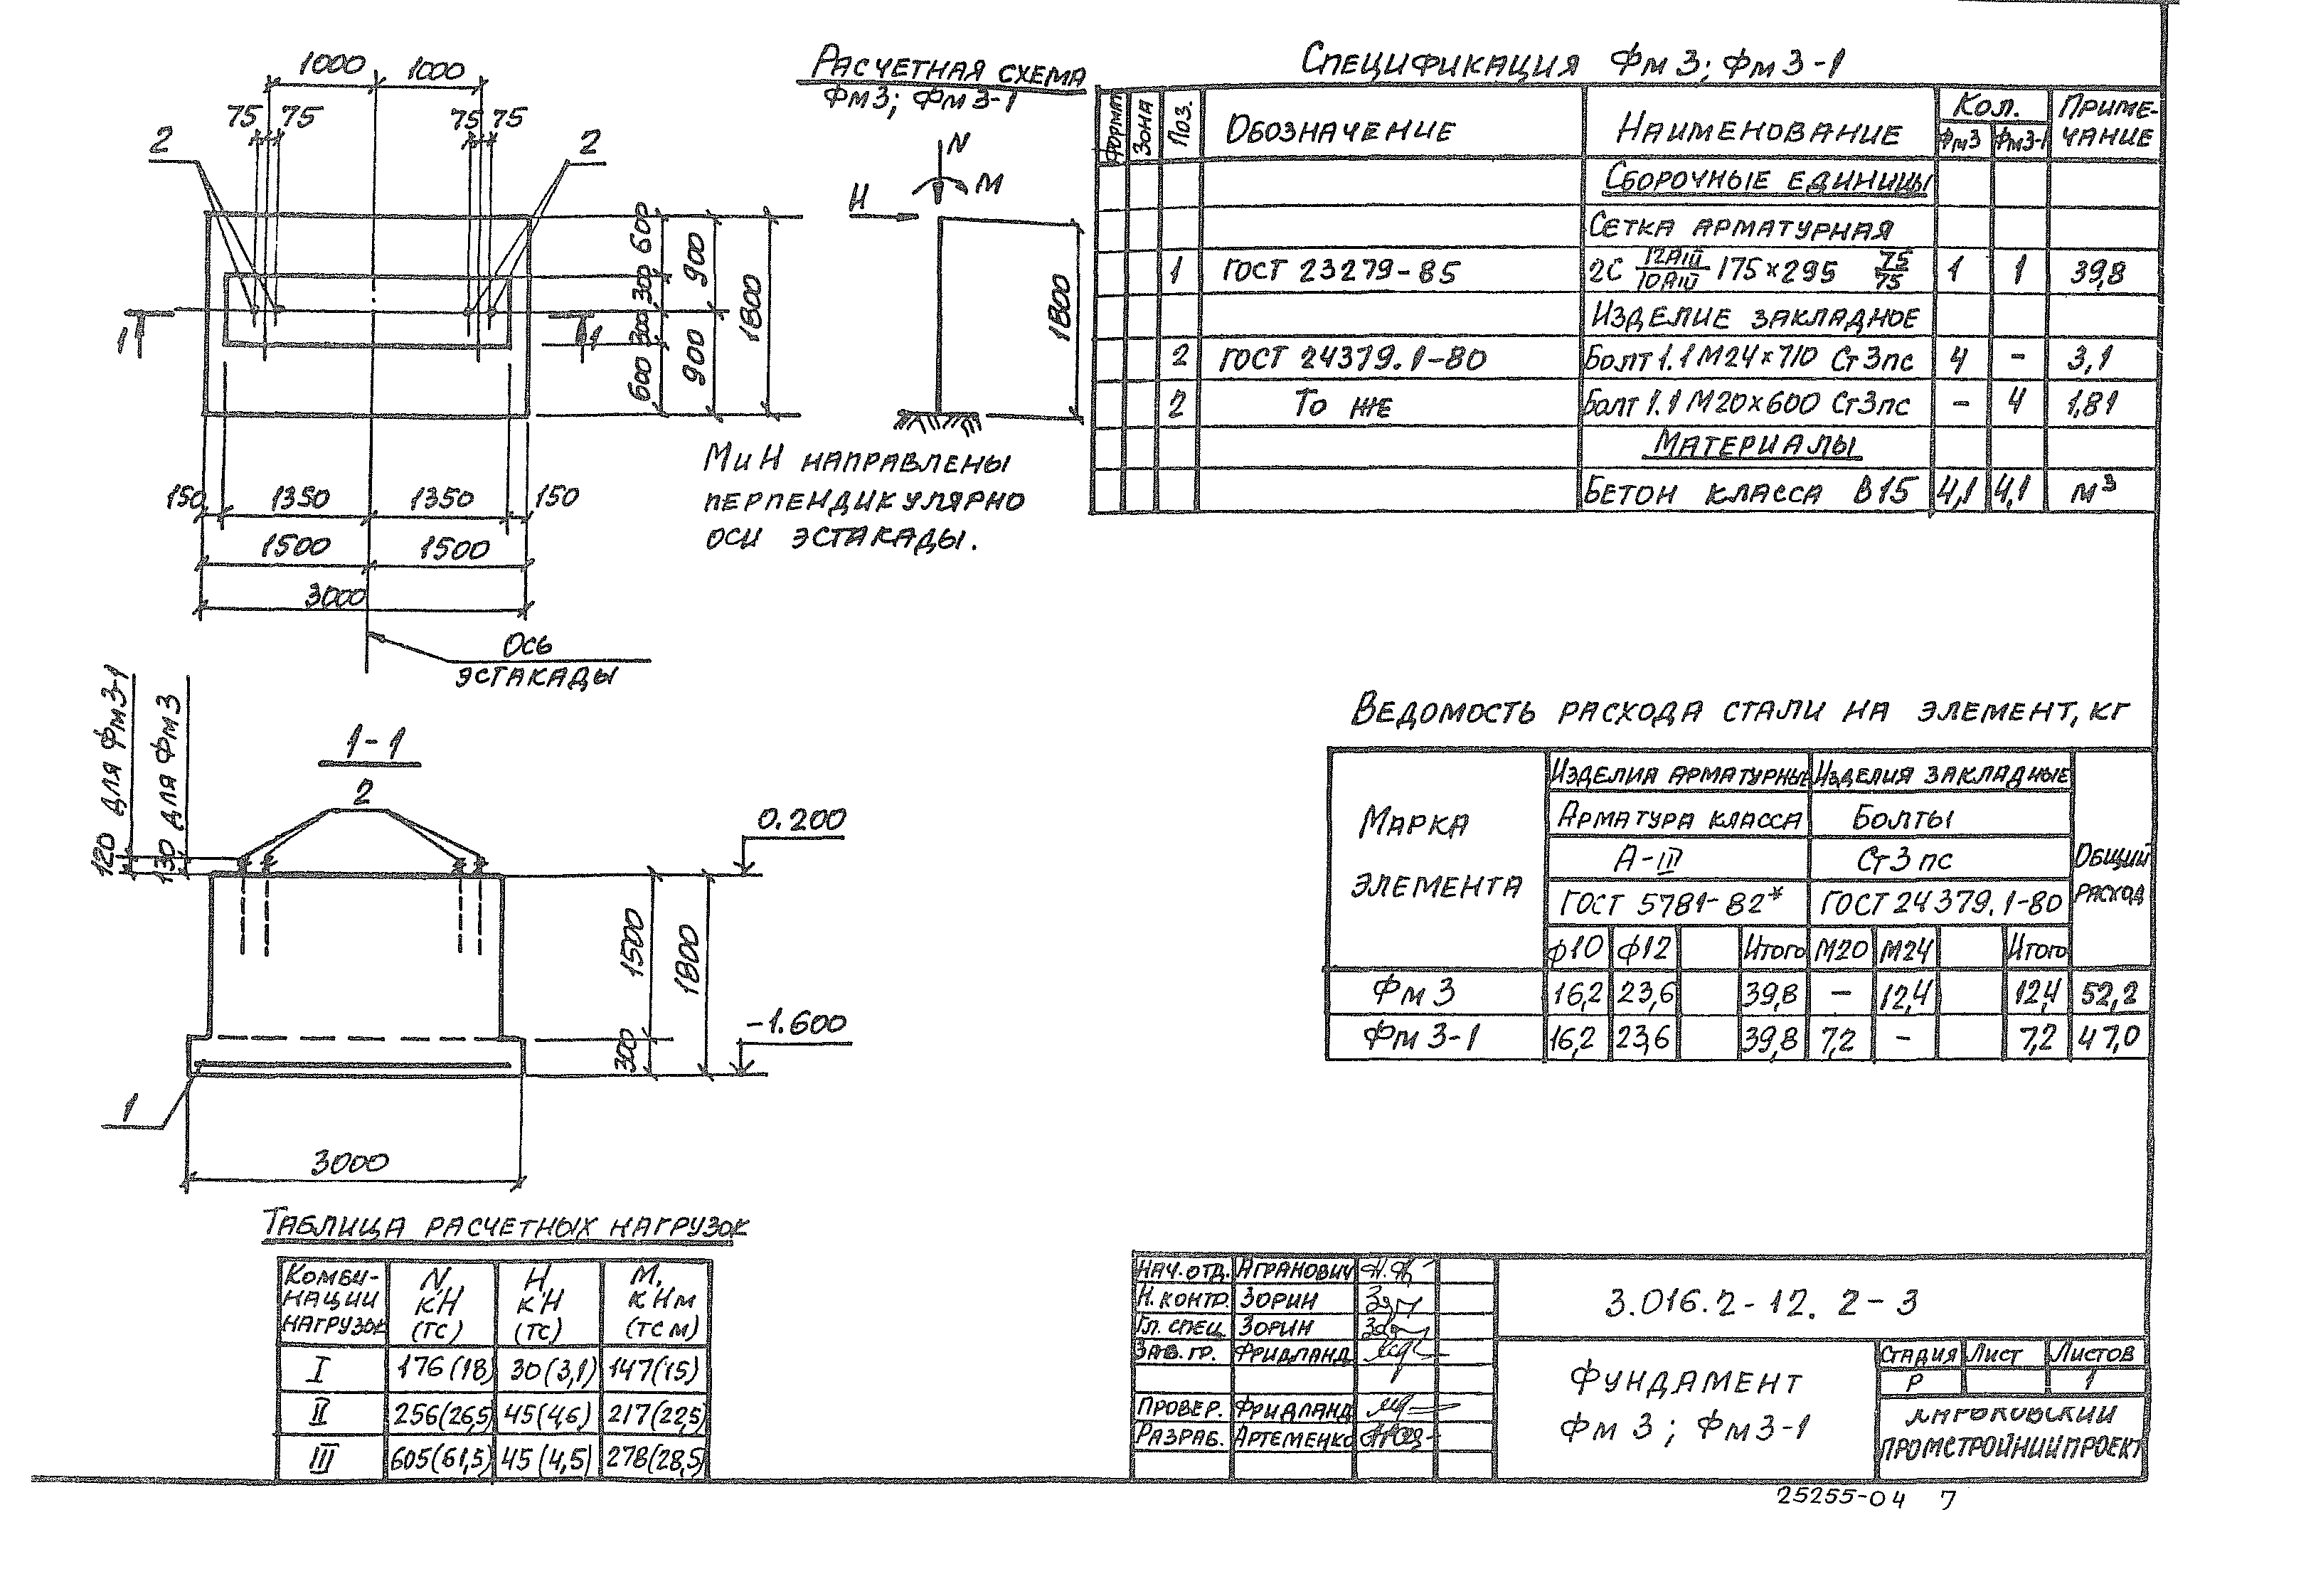 1000 1000
75 75 75 75
2 2
1 1
600 300 300 600
900 900
1800
150 1350 1350 150
1500 1500
3000
Ось
эстакады
Расчетная схема
Фм3; Фм3-1
N
M
H
1800
М и Н направлены
перпендикулярно
оси эстакады.
Спецификация Фм3; Фм3-1
Формат Зона Поз. Обозначение Наименование Кол. Приме-
Фм3 Фм3-1 чание
Сборочные единицы
Сетка арматурная
1 ГОСТ 23279-85 2С 12АIII/10АIII 175×295 75/75 1 1 39,8
Изделие закладное
2 ГОСТ 24379.1-80 Болт 1.1 М24×710 Ст3пс 4 - 3,1
2 То же Болт 1.1 М20×600 Ст3пс - 4 1,81
Материалы
Бетон класса В15 4,1 4,1 м³
120 для Фм3-1
130 для Фм3
1-1
2
0.200
1500
1800
300
-1.600
1
3000
Ведомость расхода стали на элемент, кг
Марка
элемента
Изделия арматурные Изделия закладные
Общий
расход
Арматура класса Болты
А-III Ст3пс
ГОСТ 5781-82* ГОСТ 24379.1-80
ф10 ф12 Итого М20 М24 Итого
Фм3 16,2 23,6 39,8 - 12,4 12,4 52,2
Фм3-1 16,2 23,6 39,8 7,2 - 7,2 47,0
Таблица расчетных нагрузок
Комби- N, H, M,
нации кН кН кНм
нагрузок (тс) (тс) (тс м)
I 176(18) 30(3,1) 147(15)
II 256(26,5) 45(4,6) 217(22,5)
III 605(61,5) 45(4,5) 278(28,5)
Нач. отд. Агранович
Н. контр. Зорин
Гл. спец. Зорин
Зав. гр. Фридланд
Провер. Фридланд
Разраб. Артеменко
3.016.2-12. 2-3
Фундамент
Фм3; Фм3-1
Стадия Лист Листов
Р 1
Харьковский
Промстройниипроект
25255-04 7